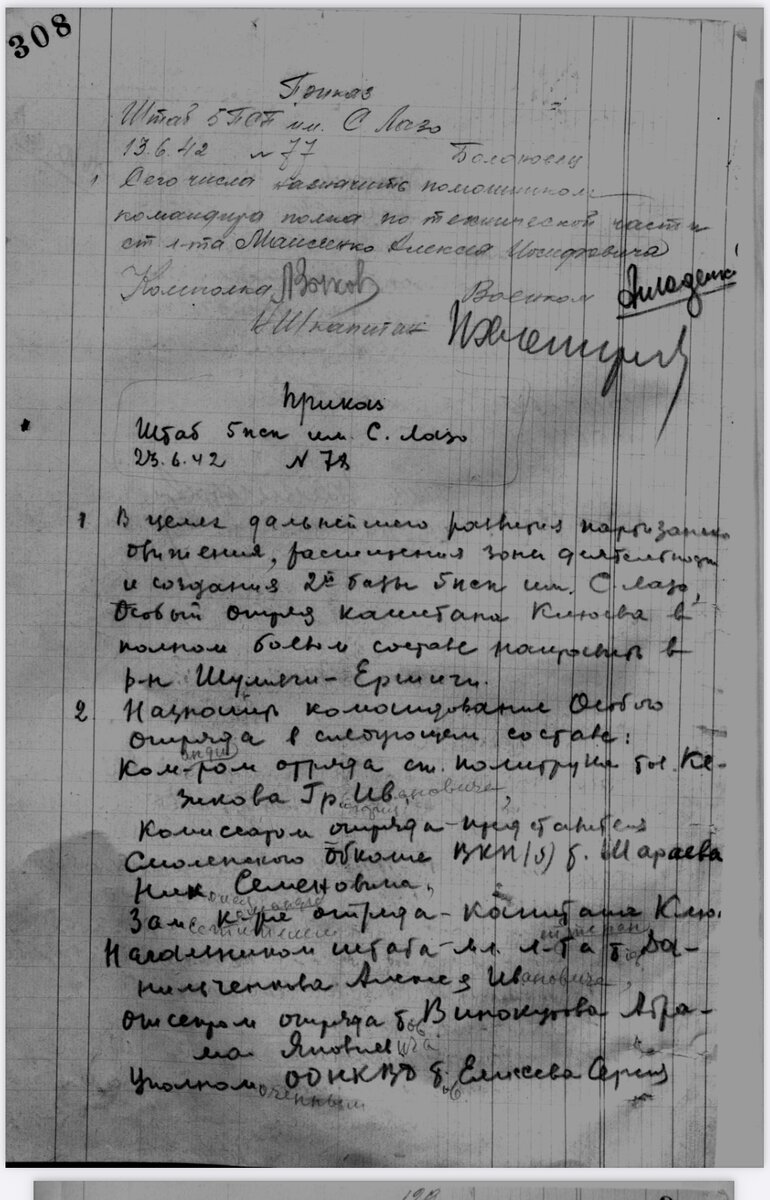 308
Приказ
Штаб 5 ПСП им. С Лазо
13.6.42 № 77
1 Сего числа назначить помошником
командира полка по технической части
ст л-та Моисеенко Алексея Иосифовича
Комполка Военком
НШ капитан
Приказ
Штаб 5 псп им. С. Лазо
23.6.42 № 78
1 В целях дальнейшего развития партизанско
движения, расширения зоны деятельности
и создания 2й базы 5 псп им. С. Лазо,
Особый отряд капитана Клюева в
полном боевом составе направить в
р-н Шумячи - Ершичи.
2 Назначить командование Особого
отряда в следующем составе:
Ком-ром отряда ст. политрука тов. Ке-
зикова Гр. Ивановича,
Комиссаром отряда - представителя
Смоленского Обкома ВКП(б) т. Шараева
Ник. Семеновича,
Зам. к-ра отряда - капитана Клю.
Начальником штаба - мл. л-та т. Да-
нильченкова Алексея Ивановича,
отряда тов Винокурова Абра-
ма Яковлевича
Уполномоченным ООНКВД тов. Елисеева Сергея
190